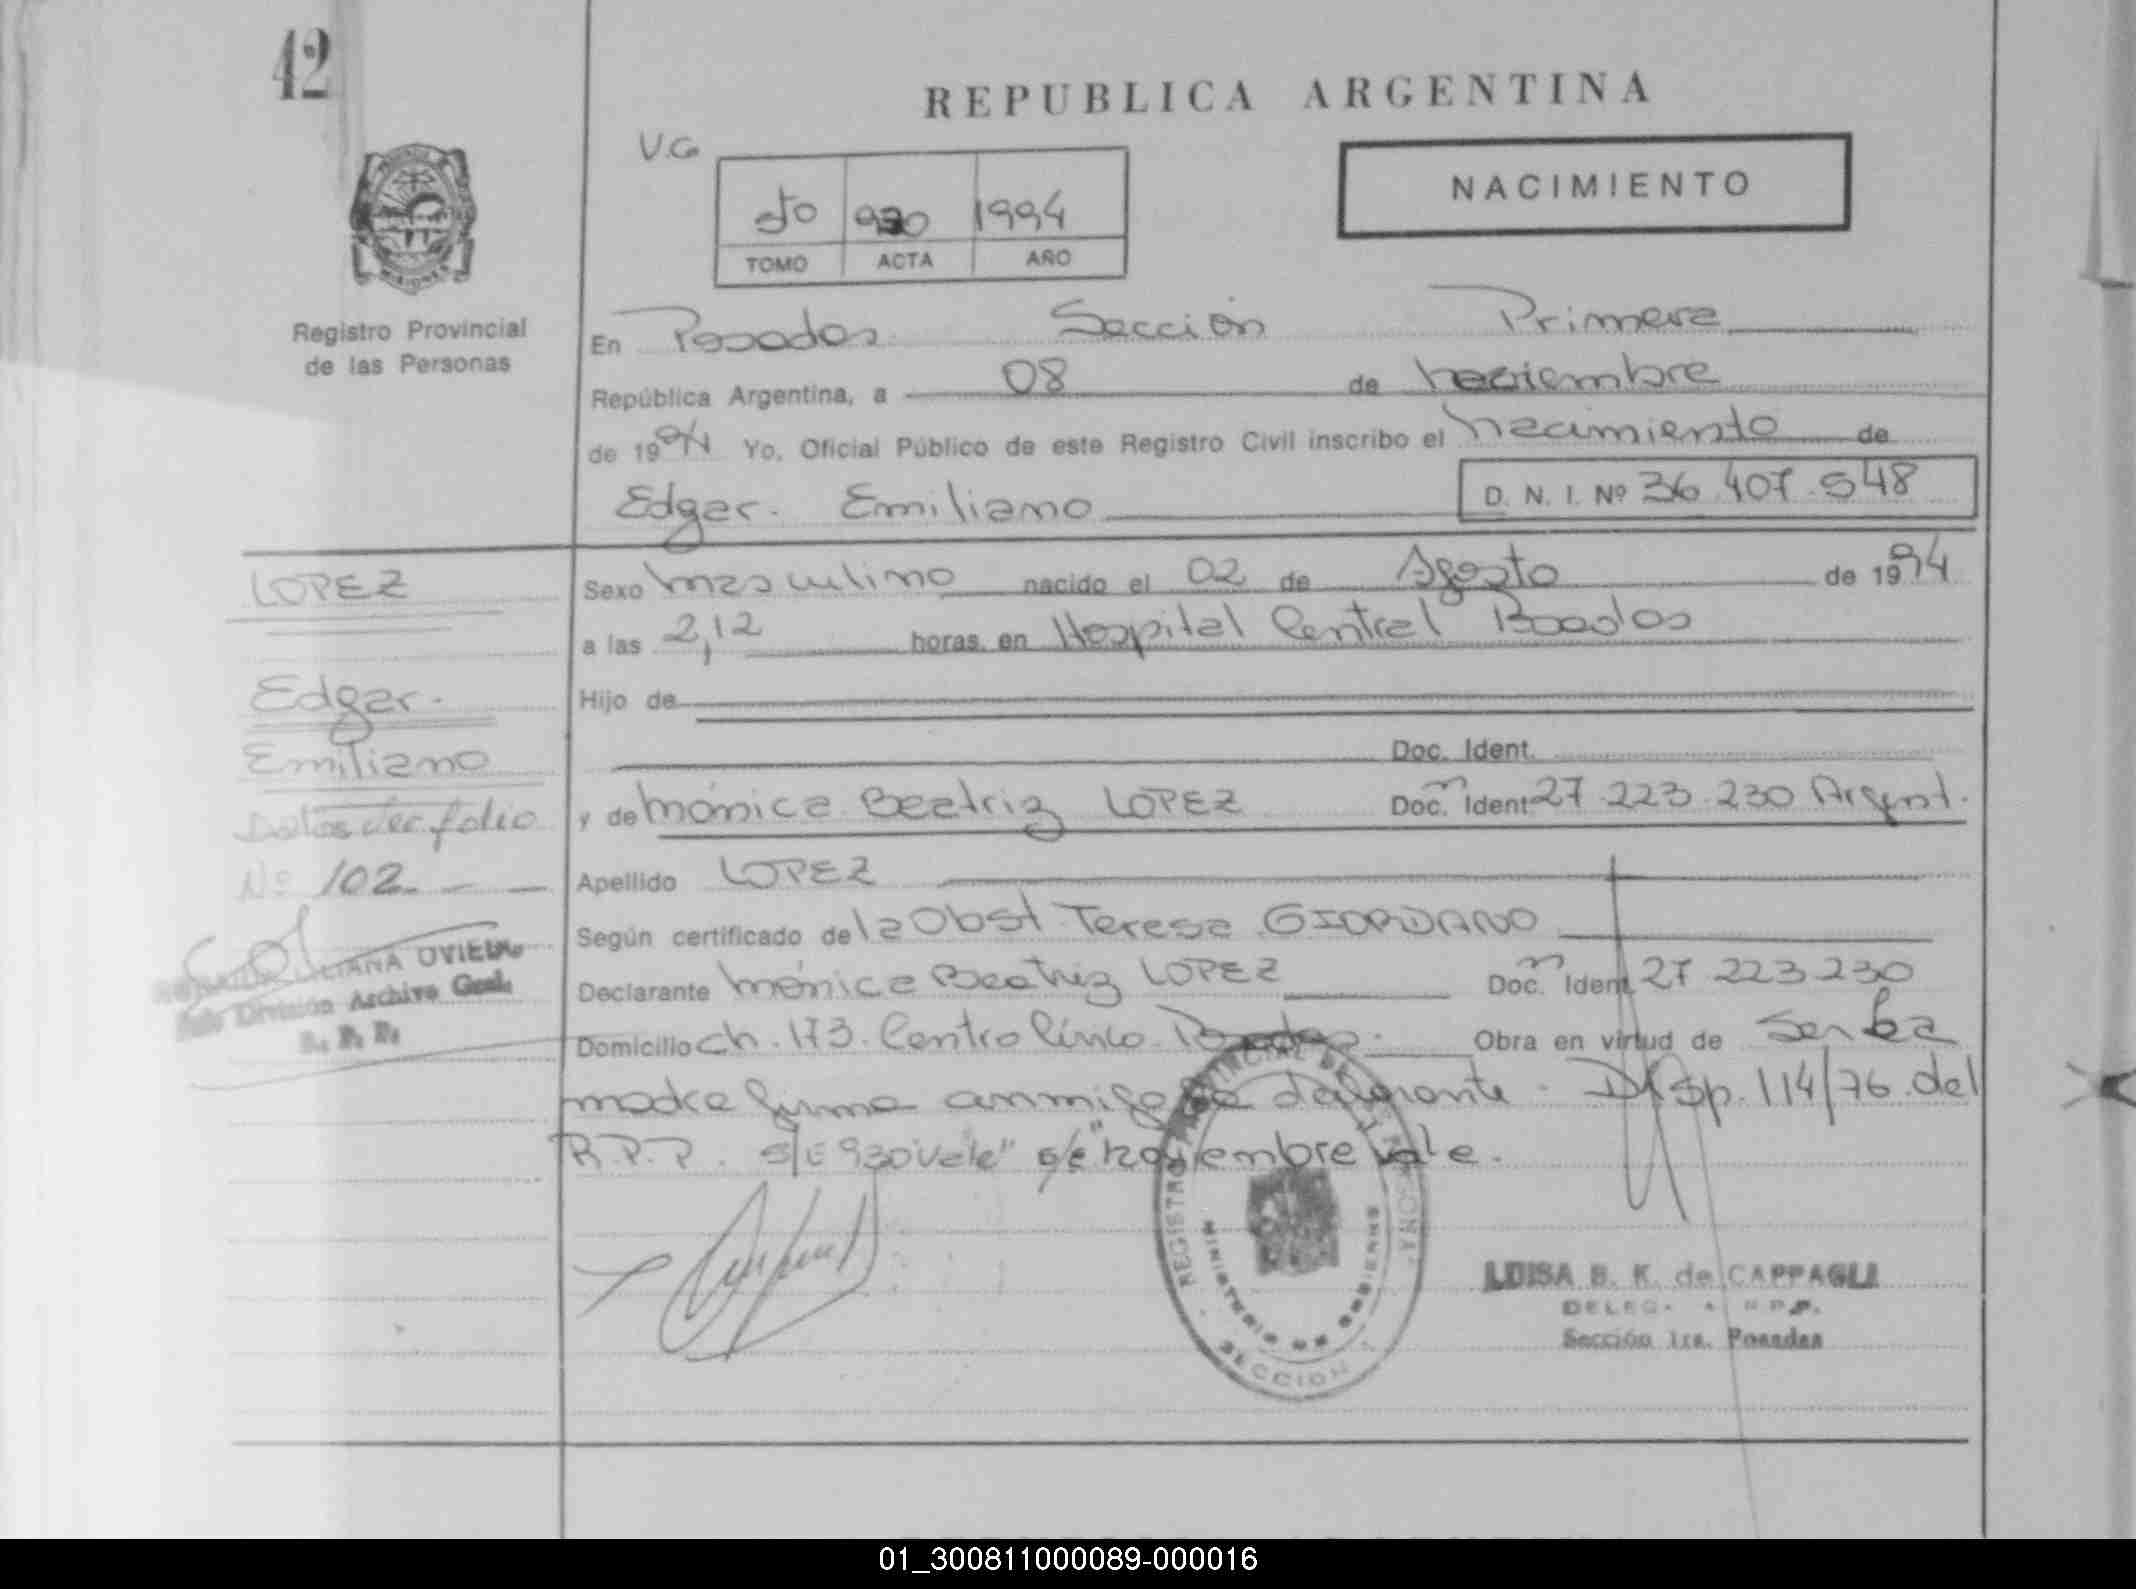 42
REPUBLICA ARGENTINA
V.G
NACIMIENTO
5to 930 1994
TOMO ACTA AÑO
Registro Provincial
de las Personas
En Posadas Sección Primera
República Argentina, a 08 de noviembre
de 1994 Yo, Oficial Público de este Registro Civil inscribo el nacimiento de
Edgar Emiliano
D. N. I. Nº 36.407.548
LOPEZ
Edgar
Emiliano
Datos ver folio
Nº 102
LIANA OVIEDO
División Archivo Gral.
R. P. P.
Sexo masculino nacido el 02 de Agosto de 1994
a las 2,12 horas, en Hospital Central Posadas
Hijo de
Doc. Ident.
y de Mónica Beatriz LOPEZ Doc. Ident. 27.223.230 Argent.
Apellido LOPEZ
Según certificado de la Obst Teresa GIORDANO
Declarante Mónica Beatriz LOPEZ Doc. Ident. 27.223.230
Domicilio ch. 173. Centro Cívico Posadas. Obra en virtud de ser la
madre firma conmigo la declarante - Disp. 114/76 del
R.P.P. s/e 930 "vale" s/e "noviembre" vale.
REGISTRO PROVINCIAL DE LAS PERSONAS
MINISTERIO DE GOBIERNO
SECCION 1
LUISA B. K. de CAPPAGLI
DELEG. R.P.P.
Sección 1ra. Posadas
01_300811000089-000016